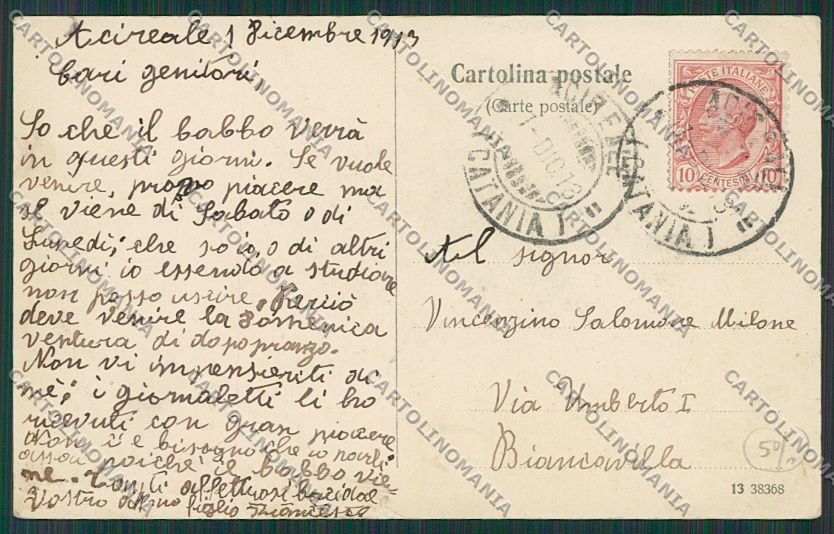 Acireale 1 Dicembre 1913
Cari genitori,
So che il babbo verrà
in questi giorni. Se vuole
venire, provo piacere ma
se viene di Sabato o di
Lunedì; che so io, o di altri
giorni io essendo a studiare
non posso uscire. Perciò
deve venire la Domenica
ventura di dopopranzo.
Non vi impensieriti di
mè; i giornaletti li ho
ricevuti con gran piacere
Non c'è bisogno che io parli
assai poichè il babbo vie-
ne. Tanti affettuosi baci dal
Vostro figlio Francesco
Cartolina postale
(Carte postale)
POSTE ITALIANE
10 CENTESIMI 10
ACIREALE
1-DIC.13
(CATANIA)
ACIREALE
(CATANIA)
Al signor
Vincenzino Salomone Milone
Via Umberto I
Biancavilla
50%
13 38368
CARTOLINOMANIA